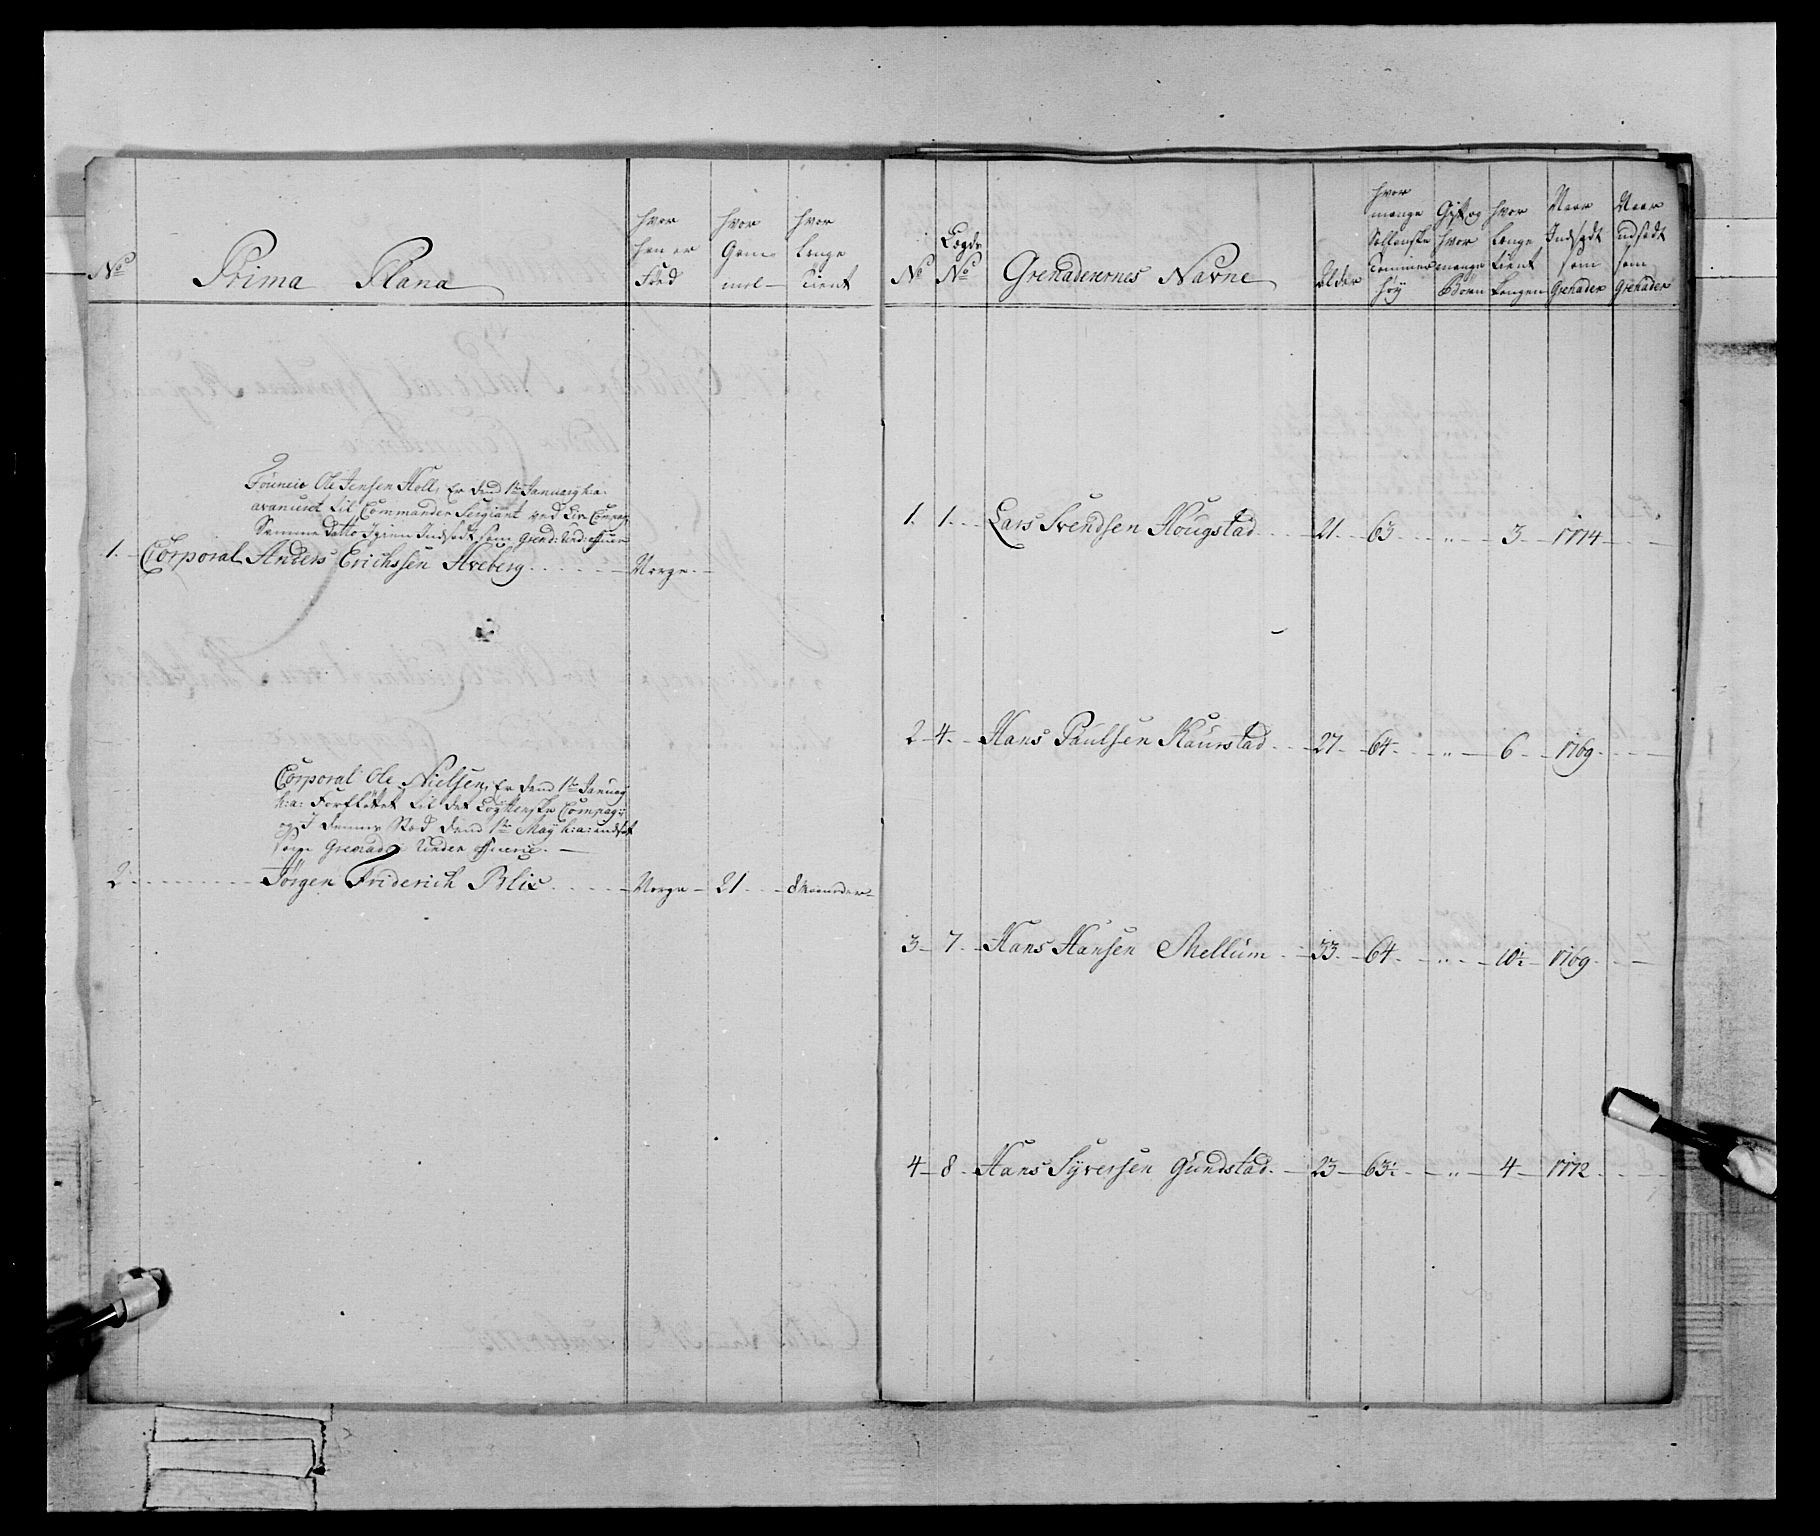 No
Prima Plana
hvor
han er
Föd
hvor
Game
mel
hvor
længe
tient
Foureir Ole Jensen Holl, Er dend 1te January h: a:
avanceret til Commander Sergiant ved Liv Compag:
Samme Datto Igien Indsadt som Grend: Und: officeer
1. Corporal Anders Erichssen Hveberg Norge
Corporal Ole Nielsen, Er dend 1te January
h: a: Forflöttet til det Compag:
og I dennes Sted dend 1te May h: a: indsat
som Grenad: Under officeer.
2 Jørgen Friderich Blix Norge 21 8 Maaneder
No
Lægds
No
Grenaderernes Navne
Alder
hvor
mange
Sellandske
Tommer
höy
Gift og
hvor
mange
Börn
hvor
længe
tient
kongen
Naar
Indsadt
som
Grenader
Naar
udsadt
som
Grenader
1. 1. Lars Svendsen Hougstad 21 63 " 3 1774
2 4 Hans Paulsen Kaurstad 27 64 " 6 1769
3 7 Hans Hansen Mellum 33 64 " 10½ 1769
4 8 Hans Syversen Gundstad 23 63½ " 4 1772